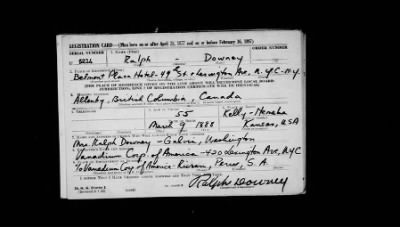 REGISTRATION CARD—(Men born on or after April 28, 1877 and on or before February 16, 1897)
SERIAL NUMBER 1. NAME (Print) ORDER NUMBER
U Ralph - Downey
2. PLACE OF RESIDENCE (Print)
Belmont Plaza Hotel - 49th St & Lexington Ave, N.Y.C. - N.Y.
[THE PLACE OF RESIDENCE GIVEN ON THE LINE ABOVE WILL DETERMINE LOCAL BOARD
JURISDICTION; LINE 2 OF REGISTRATION CERTIFICATE WILL BE IDENTICAL]
3. MAILING ADDRESS
Allenby, British Columbia, Canada
4. TELEPHONE
55
Kelly - Nemaha
March 9 1888 Kansas, USA
Mrs. Ralph Downey - Galvin, Washington
Vanadium Corp. of America - 420 Lexington Ave, NYC
% Vanadium Corp of America - Ricran, Peru, S.A.
Ralph Downey